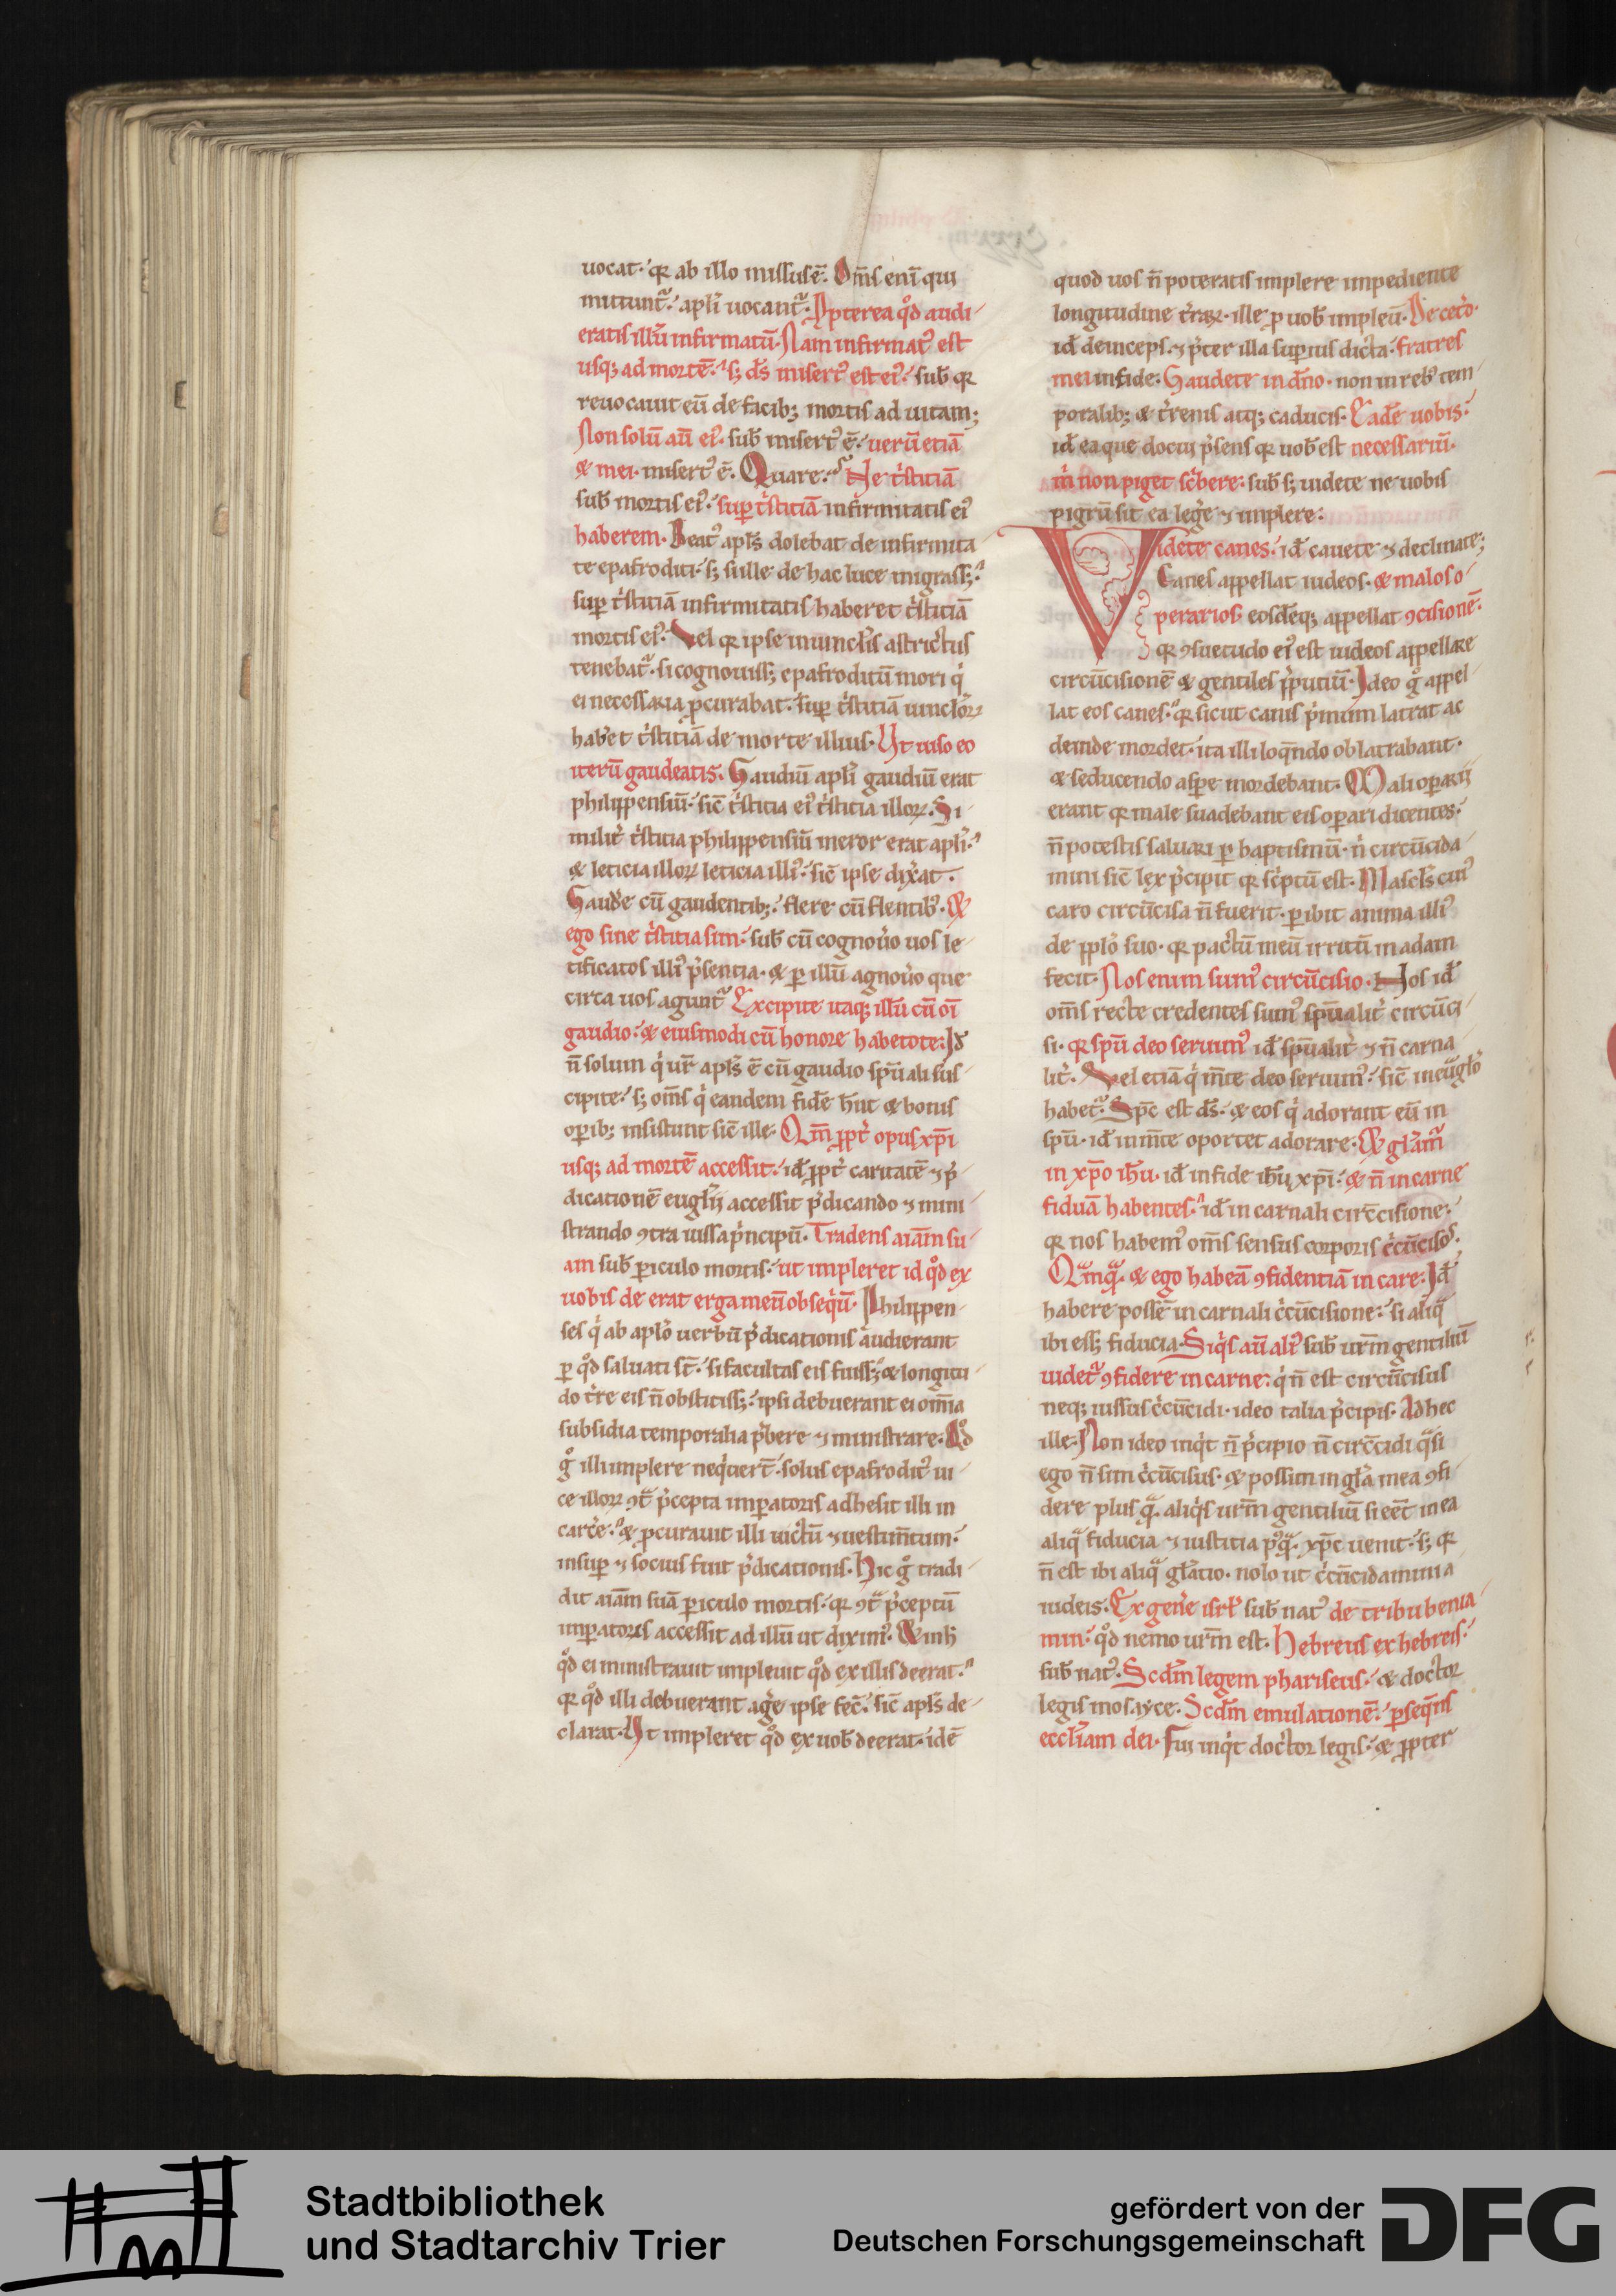 uocat· qꝛ ab illo missus ē. Om̄s eni̅ qui
mittunt᷑· apl̓i uocant᷑. Ppterea qd̊ audi
eratis illū infirmatū. Nam infirmat᷒ est
usq; ad mortē· s; ds̄ misert᷒ est ei᷒· sub̄ qꝛ
reuocauit eū de facib; mortis ad uitam;
Non solū aū ei᷒· sub̄ misert᷒ ē· uerū etiā
& mei· misert᷒ ē. Quare· Ne tͥstitiā
sub̄ mortis ei᷒· sup tͥstitiā infirmitatis ei᷒
haberem. Beat᷒ apl̓s dolebat de infirmita
te epafroditi· s; si ille de hac luce migrass;
sup tͥstitiā infirmitatis haberet tͥstitiā
mortis ei᷒. Vel qꝛ ipse in uinclis astrictus
tenebat᷑· si cognouiss; epafroditū mori qͥ
ei necessaria pcurabat· sup tͥstitiā uincloꝝ
habet tͥstitiā de morte illius. Vt uiso eo
iterū gaudeatis. Gaudiū apl̓i gaudiū erat
philippensiū· sic̄ tͥstitia ei᷒ tͥstitia illoꝝ. Si
milit̓ tͥstitia philippensiū meror erat apl̓i·
& leticia illoꝝ leticia illi᷒· sic̄ ipse dix̓at.
Gaud̓e cū gaudentib;· flere cū flentib᷒. &
ego sine tͥstitia sim· sub̄ cū cognou̓o uos le
tificatos illi᷒ p̓sentia· & p illū agnou̓o que
circa uos agunt᷑. Excipite itaq; illū cū oi̅
gaudio· & eiusmodi cū honore habetote: Id̄
n̄ solum qͥ ur̄ apl̓s ē cū gaudio spūali sus
cipite· s; om̄s qͥ eandem fidē hn̄t & bonis
opib; insistunt sic̄ ille. Qm̄ ppt̓ opus xp̄i
usq; ad mortē accessit· id̄ ppt̓ caritatē ⁊ p̓
dicationē euglii accessit p̓dicando ⁊ mini
strando ꝯtra iussa pͥncipū. Tradens aiām su
am sub̄ piculo mortis· ut impleret id qd̊ ex
uobis de erat erga meū obseqͥū. Philippen
ses qͥ ab apl̓o uerbū p̓dicationis audierant
p qd̊ saluati st̄· si facultas eis fuiss; & longitu
do t̓re eis n̄ obstitiss;· ipsi debuerant ei om̄ia
subsidia temporalia p̓bere ⁊ ministrare. Qd̊
g̊ illi implere neqͥuert̄· solus epafrodit᷒ ui
ce illoꝝ ꝯtͣ p̓cepta impatoris adhesit illi in
carc̓e· & pcurauit illi uictū ⁊ uestim̄tum·
insup ⁊ socius fuit p̓dicationis. Hic g̊ tradi
dit aiām suā piculo mortis· qꝛ ꝯtͣ p̓ceptū
impatoris accessit ad illū ut dixim᷒. & in h̄
qd̊ ei ministrauit impleuit qd̊ ex illis deerat·
qꝛ qd̊ illi debuerant ag̓e ipse fec̄· sic̄ apl̓s de
clarat. Vt impleret qd̊ ex uob̄ deerat· idē
quod uos n̄ poteratis implere impediente
longitudine t̓raꝝ· ille p uob̄ impleu̅. De cet̓o·
id̄ deinceps ⁊ p̓ter illa supius dicta· fratres
mei in fide: Gaudete in dn̄o· non in reb᷒ tem
poralib; & t̓renis atq; caducis. Eadē uobis·
id̄ ea que docui p̓sens qꝛ uob̄ est necessariū·
mͥ non piget sc̓bere: sub̄ s; uidete ne uobis
pigrū sit ea leg̓e ⁊ implere:
Videte canes· id̄ cauete ⁊ declinate;
Canes appellat iudeos. & malos o
perarios· eosdeq; appellat ꝯcisionē·
qꝛ ꝯsuetudo ei᷒ est iudeos appellare
circūcisionē & gentiles pputiū. Ideo g̊ appel
lat eos canes· qꝛ sicut canis pͥmum latrat ac
deinde mordet· ita illi loqn̄do oblatrabant·
& seducendo aspe mordebant. Mali oparii
erant qꝛ male suadebant eis opari dicentes·
n̄ potestis saluari p baptismū· n̓ circūcida
mini sic̄ lex p̓cipit qꝛ sc̓ptū est. Mascl̓s cui᷒
caro circūcisa n̄ fuerit· pibit anima illi᷒
de pplo suo· qꝛ pactū meū irritū in adam
fecit. Nos enim sum᷒ circūcisio. Nos id̄
om̄s recte credentes sum᷒ spūalit̓ circūci
si· qꝛ spū deo seruim᷒ id̄ spūalit̓ ⁊ n̄ carna
lit̓. Vel etiā qͥ m̄te deo seruim᷒· sic̄ in euglo
habet᷑. Spc̄ est ds̄· & eos qͥ adorant eū in
spū· id̄ in m̄te oportet adorare. & gl̓am᷑
in xp̄o ih̄u· id̄ in fide ih̄u xp̄i· & n̄ in carne
fiduciā habentes· id̄ in carnali circ̄cisione·
qꝛ nos habem᷒ om̄s sensus corporis cͥcūcisos.
Qͣmqͣ & ego habeā ꝯfidentiā in care: Id̄
habere possē in carnali cͥcūcisione· si aliqͣ
ibi ess; fiducia. Siqͥs aū ali᷒ sub̄ ur̄m gentiliū
uidet᷑ ꝯfidere in carne: qͥ n̄ est circūcisus
neq; iussus cͥcūcidi· ideo talia p̓cipis. Ad hec
ille. Non ideo inqͥt n̄ p̓cipio n̄ circ̄cidi qͣsi
ego n̄ sim cͥcūcisus· & possim in gl̓a mea ꝯfi
dere plus qͣ aliqͥs ur̄m gentiliū si eēt in ea
aliqͣ fiducia ⁊ iustitia p᷒qͣ xp̄c uenit· s; qꝛ
n̄ est ibi aliqͣ gl̓atio· nolo ut cͥcūcidamini a
iudeis. Ex gen̓e isrl̓ sub̄ nat᷒ de tribu benia
min· qd̊ nemo ur̄m est. Hebreus ex hebreis·
sub̄ nat᷒. Scdm̄ legem phariseus· & doctor
legis mosayce. Scdm̄ emulationē· pseqn̄s
eccl̓iam dei. Fui inqͥt doctor legis· & ppter
Stadtbibliothek
und Stadtarchiv Trier
gefördert von der
Deutschen Forschungsgemeinschaft
DFG